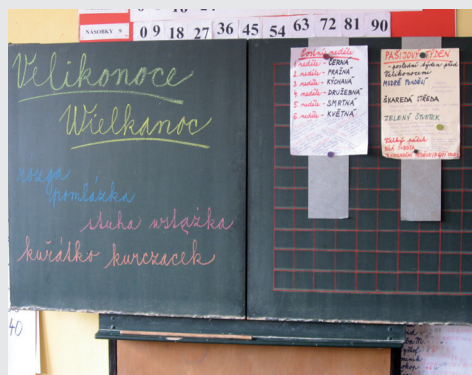 NÁSOBKY 9
0 9 18 27 36 45 54 63 72 81 90
Velikonoce
Wielkanoc
rózga
pomlázka
stuha wstążka
kuřátko kurczacek
Postní neděle
1. neděle - ČERNÁ
2. neděle - PRAŽNÁ
3. neděle - KÝCHAVÁ
4. neděle - DRUŽEBNÁ
5. neděle - SMRTNÁ
6. neděle - KVĚTNÁ
PAŠIJOVÝ TÝDEN
- poslední týden před
Velikonocemi
MODRÉ PONDĚLÍ
ŠKAREDÁ STŘEDA
ZELENÝ ČTVRTEK
Velký pátek
BÍLÁ SOBOTA
40